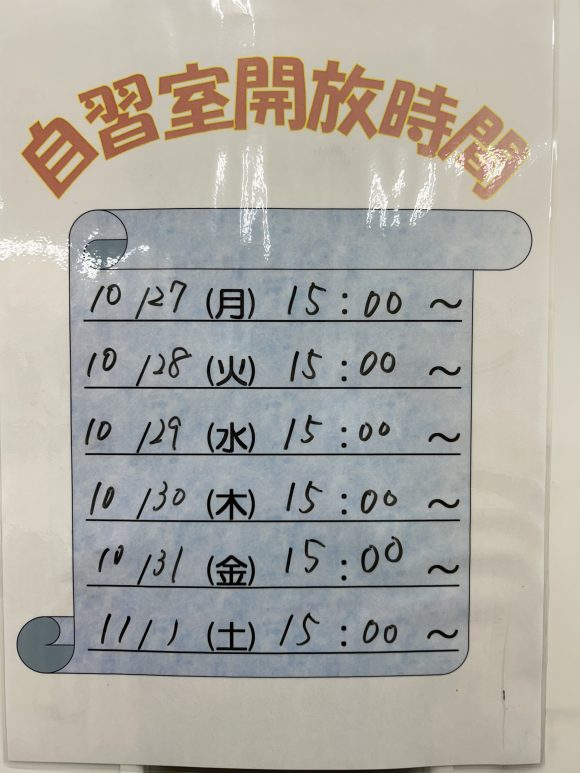 自習室開放時間
10/27(月) 15:00~
10/28(火) 15:00~
10/29(水) 15:00~
10/30(木) 15:00~
10/31(金) 15:00~
11/1(土) 15:00~